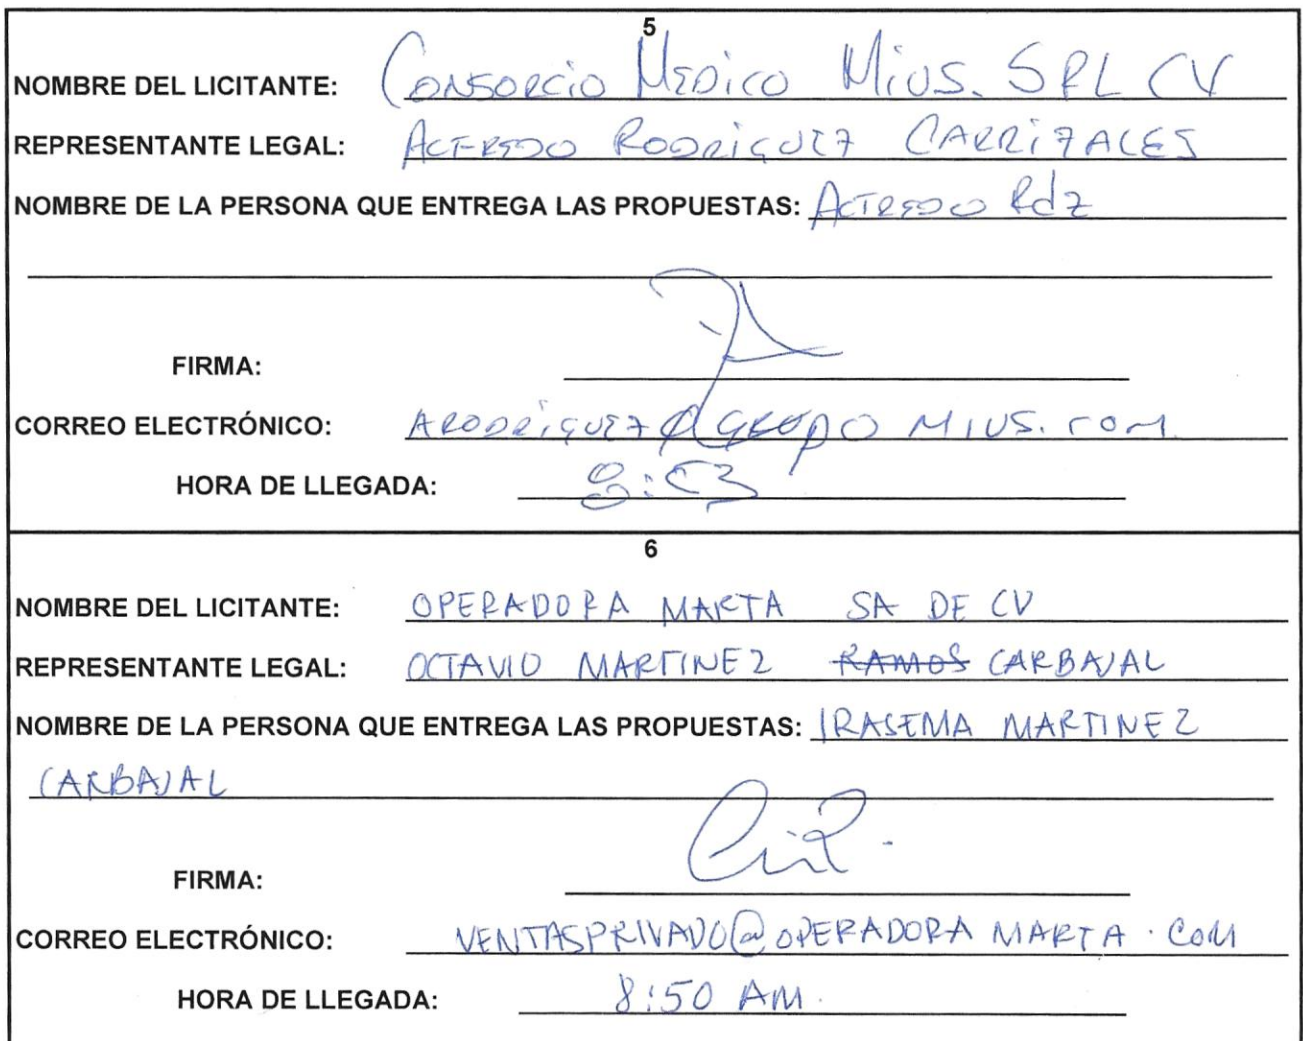 5
NOMBRE DEL LICITANTE: CONSORCIO MEDICO MiUS. SRL CV
REPRESENTANTE LEGAL: ALFREDO RODRIGUEZ CARRIZALES
NOMBRE DE LA PERSONA QUE ENTREGA LAS PROPUESTAS: ALFREDO Rdz
FIRMA:
CORREO ELECTRÓNICO: ARODRIGUEZ@GRUPO MIUS.COM
HORA DE LLEGADA:
6
NOMBRE DEL LICITANTE: OPERADORA MARTA SA DE CV
REPRESENTANTE LEGAL: OCTAVIO MARTINEZ RAMOS CARBAJAL
NOMBRE DE LA PERSONA QUE ENTREGA LAS PROPUESTAS: IRASEMA MARTINEZ
CARBAJAL
FIRMA:
CORREO ELECTRÓNICO: VENTASPRIVADO@OPERADORA MARTA.COM
HORA DE LLEGADA: 8:50 AM.